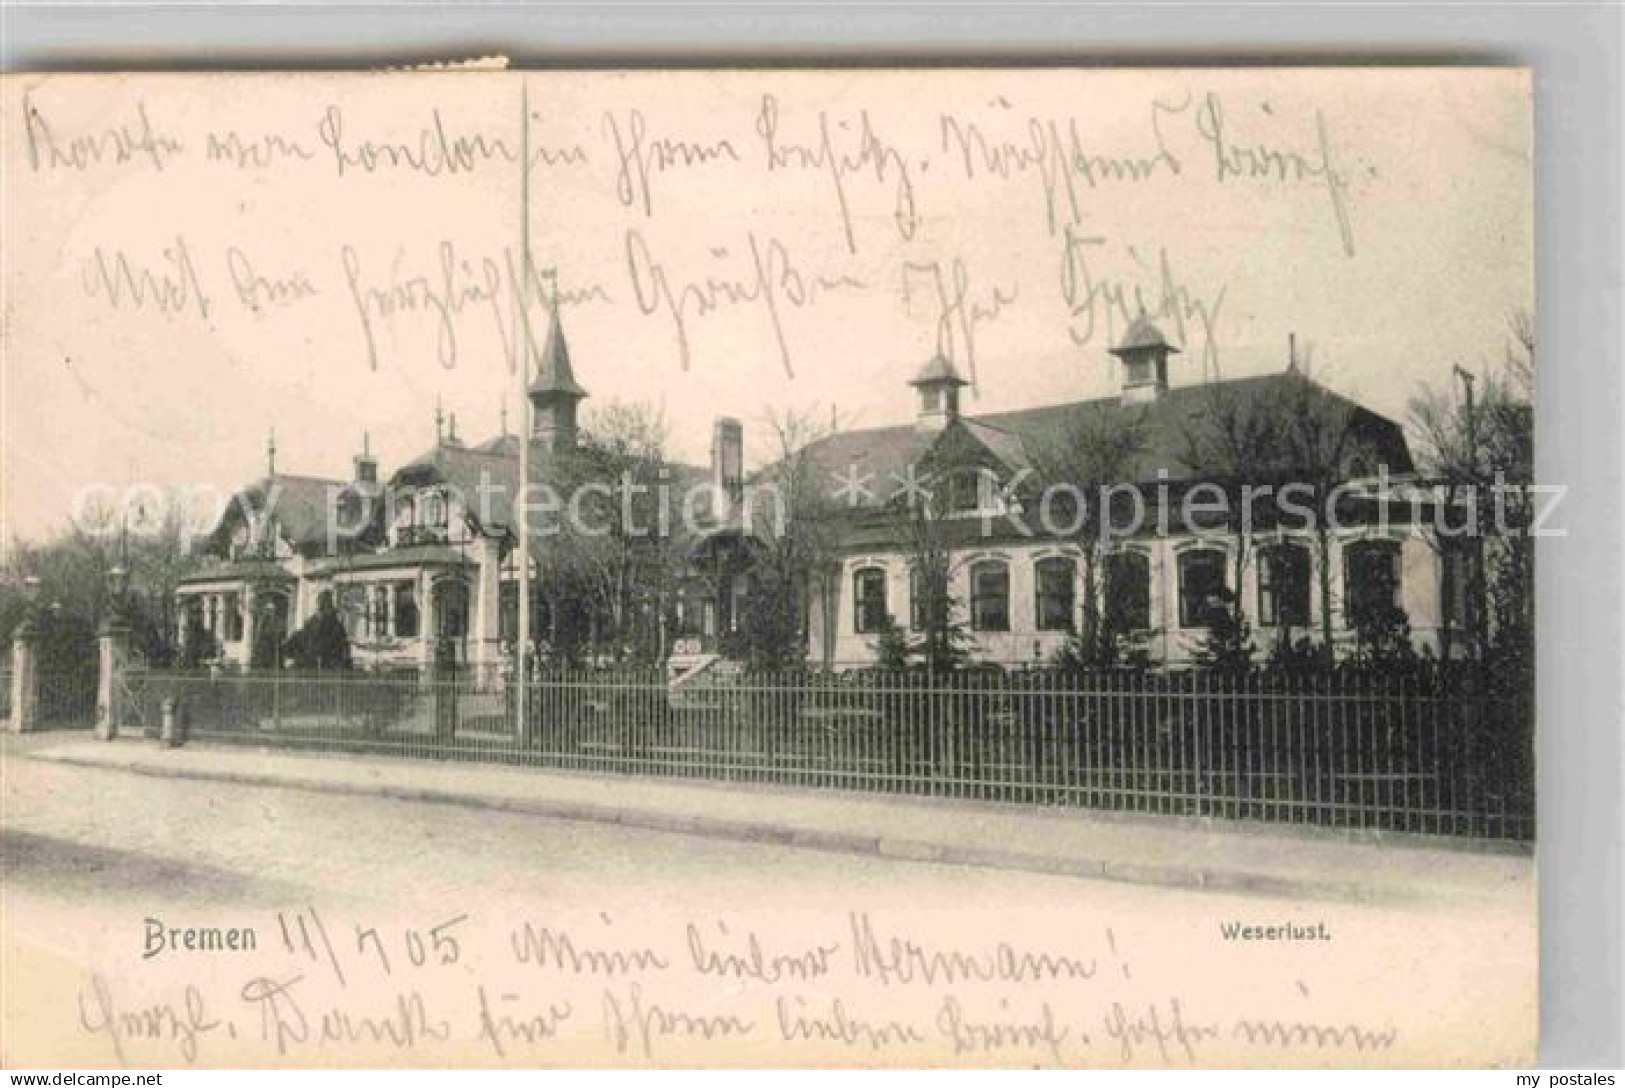 Karte von London in Ihrem Besitz. Nächstens Brief.
Mit den herzlichsten Grüßen Ihr Fritz
copy protection ** Kopierschutz
Bremen 11/7 05 Mein lieber Hermann! Weserlust.
Herzl. Dank für Ihren lieben Brief. Hoffe meine
my postales